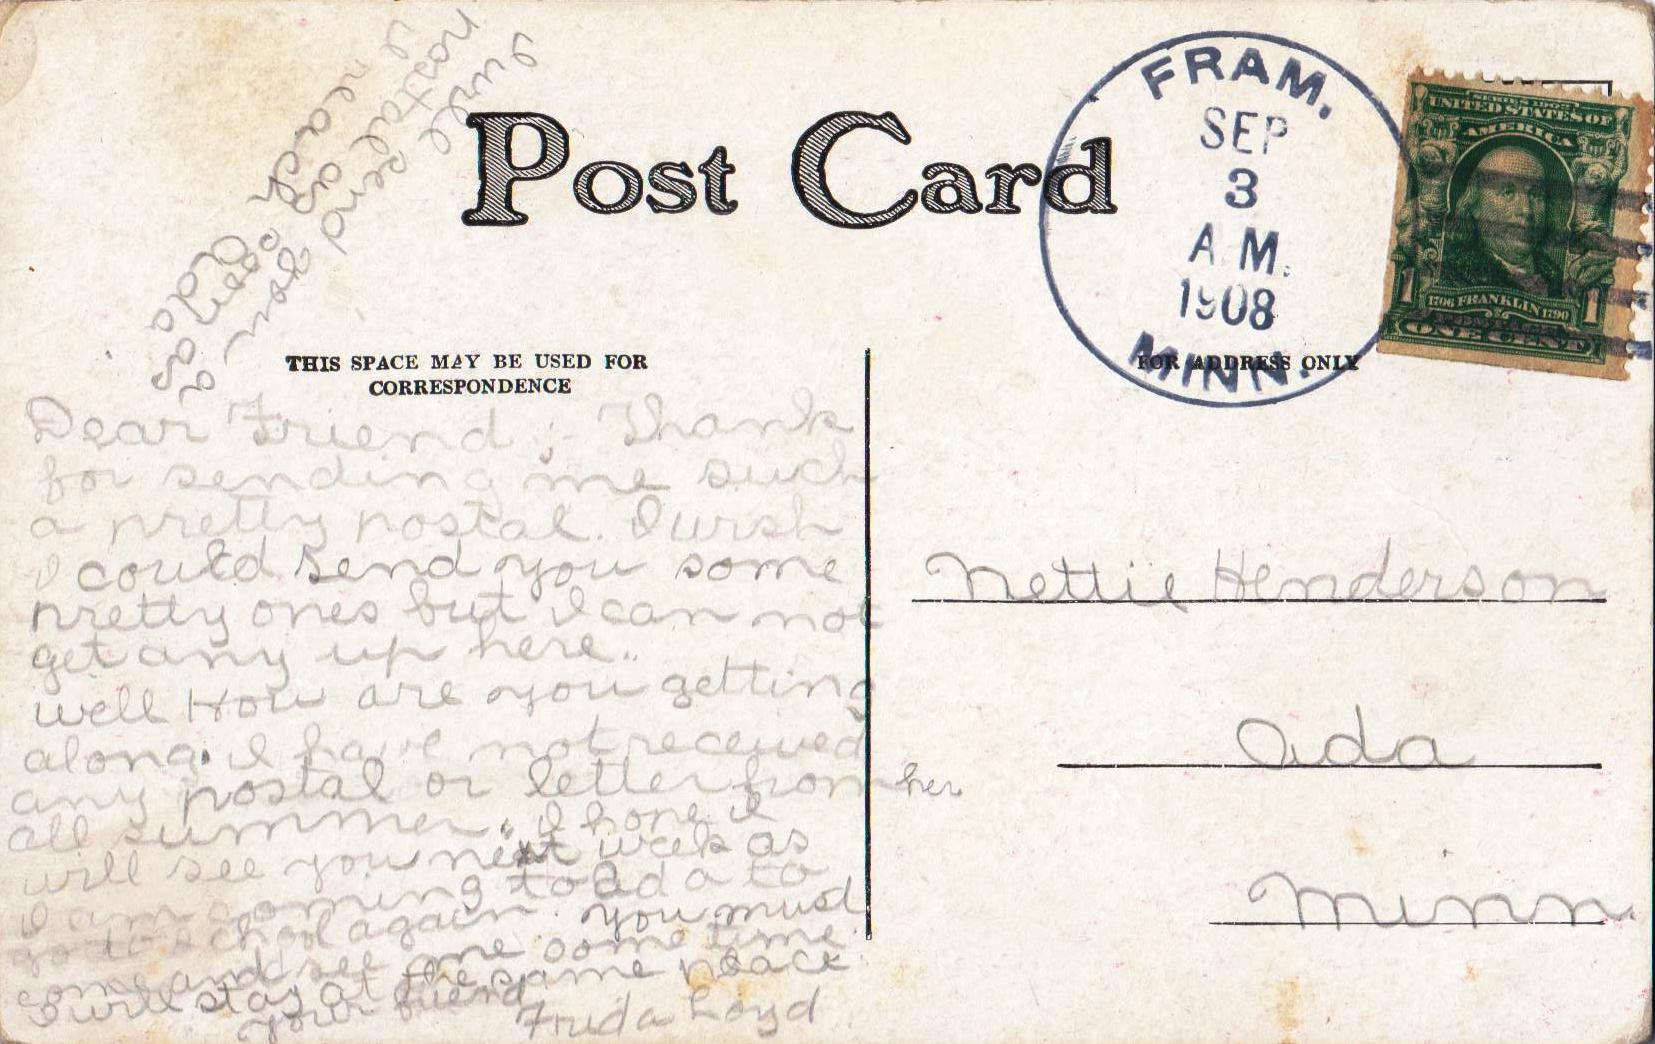 Post Card
FRAM.
SEP
3
A.M.
1908
MINN.
SERIES 1902
UNITED STATES OF
AMERICA
1706 FRANKLIN 1790
1 1
POSTAGE
ONE CENT
THIS SPACE MAY BE USED FOR
CORRESPONDENCE
FOR ADDRESS ONLY
Dear Friend;- Thank
for sending me such
a pretty postal. I wish
I could send you some
pretty ones but I can not
get any up here..
well How are you getting
along. I have not received
any postal or letter from her
all summer. I hope I
will see you next week as
I am coming to Ada to
go to school again. you must
come and see me some time.
I will stay at the same place
your friend
Frida Loyd
Nettie Henderson
Ada
Minn.
reach
Ada
as soon as
postal
send